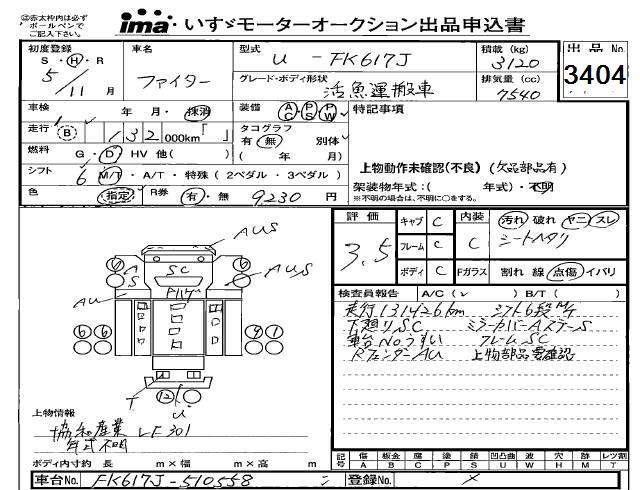 赤太枠内は必ず
ボールペンで
ご記入下さい。
ima いすゞモーターオークション出品申込書
初度登録 S・H・R 5/11 月
車名 ファイター
型式 U-FK617J
積載 (kg) 3120
出品No. 3404
グレード・ボディ形状 活魚運搬車
排気量 (cc) 7540
車検 年 月・抹消
装備 AC・PS・PW
特記事項
走行 B 132000km「 」
タコグラフ 有・無 別体 ( 年 月)
燃料 G・D・HV 他( )
上物動作未確認(不良) (欠品部品有)
シフト 6 M/T・A/T・特殊(2ペダル・3ペダル)
架装物年式:( 年式)・不明
※不明の場合は、不明に○をする。
色 指定
R券 有・無 9230 円
評価 3.5
キャブ C
フレーム C
ボディ C
内装 C
Fガラス
汚れ 破れ ヤニ スレ
シートヘタリ
割れ 線 点傷 イバリ
AUS
A SC
AUS
AU
T
U
検査員報告 A/C( ) B/T( )
走行131426km シフト6段M/T
下廻りSC
車台Noうすい フレームSC
RフェンダーAU 上物部品要確認
上物情報
協和産業 LF301
年式不明
ボディ内寸約 長 m×幅 m×高 m
記号 傷A 板金B 腐C 塗P 錆S 凹凸曲U 波W 穴H 跡M レツ割T
車台No. FK617J-510558
登録No. ×